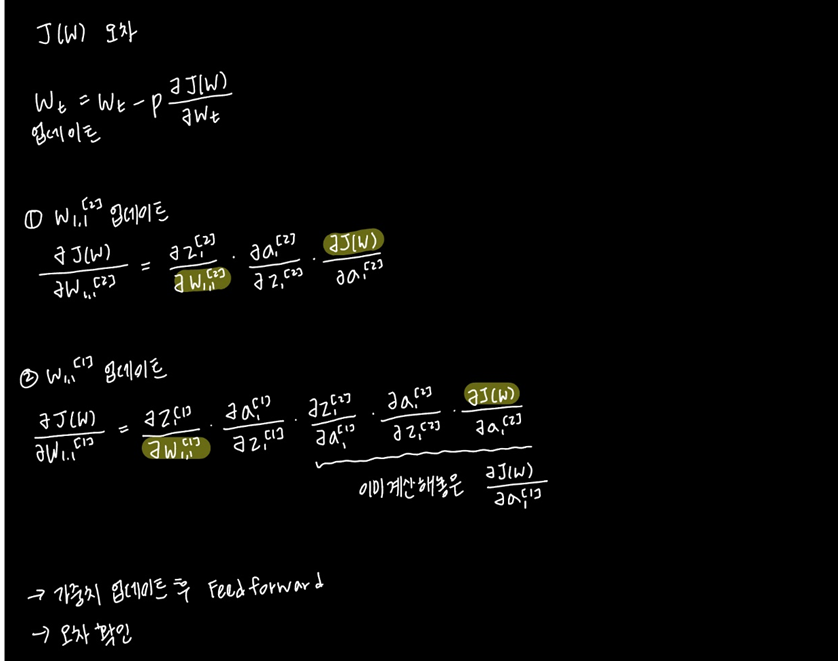 J(W) 오차
W_t = W_t - p ∂J(W)/∂W_t
업데이트
① W_{1,1}^{[2]} 업데이트
∂J(W)/∂W_{1,1}^{[2]} = ∂z_1^{[2]}/∂W_{1,1}^{[2]} · ∂a_1^{[2]}/∂z_1^{[2]} · ∂J(W)/∂a_1^{[2]}
② W_{1,1}^{[1]} 업데이트
∂J(W)/∂W_{1,1}^{[1]} = ∂z_1^{[1]}/∂W_{1,1}^{[1]} · ∂a_1^{[1]}/∂z_1^{[1]} · ∂z_1^{[2]}/∂a_1^{[1]} · ∂a_1^{[2]}/∂z_1^{[2]} · ∂J(W)/∂a_1^{[2]}
이미 계산해놓은 ∂J(W)/∂a_1^{[1]}
→ 가중치 업데이트 후 Feed forward
→ 오차 확인